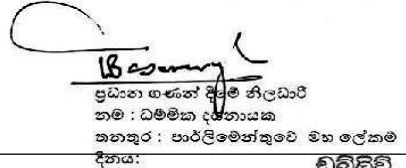 ප්‍රධාන ගණන් දීමේ නිලධාරී
නම : ධම්මික දසනායක
තනතුර : පාර්ලිමේන්තුවේ මහ ලේකම්
දිනය: